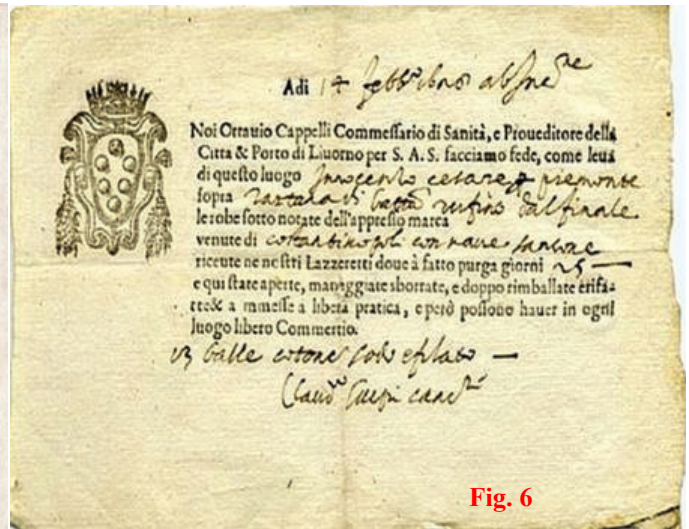 Adi 14 febb.
Noi Ottauio Cappelli Commessario di Sanità, e Proueditore della
Citta & Porto di Liuorno per S. A. S. facciamo fede, come leua
di questo luogo Innocentio cesare piemonte
sopra tartana di batta rufino dal finale
le robe sotto notate dell'appresso marca
venute di costantinopoli con naue sansone
riceute ne nostri Lazzeretti doue à fatto purga giorni 25
e qui state aperte, maneggiate sborrate, e doppo rimballate e rifat-
te & ammesse à libera pratica, e però possono hauer in ogni
luogo libero Commertio.
balle cotone sodo e filato
Claud canc
Fig. 6